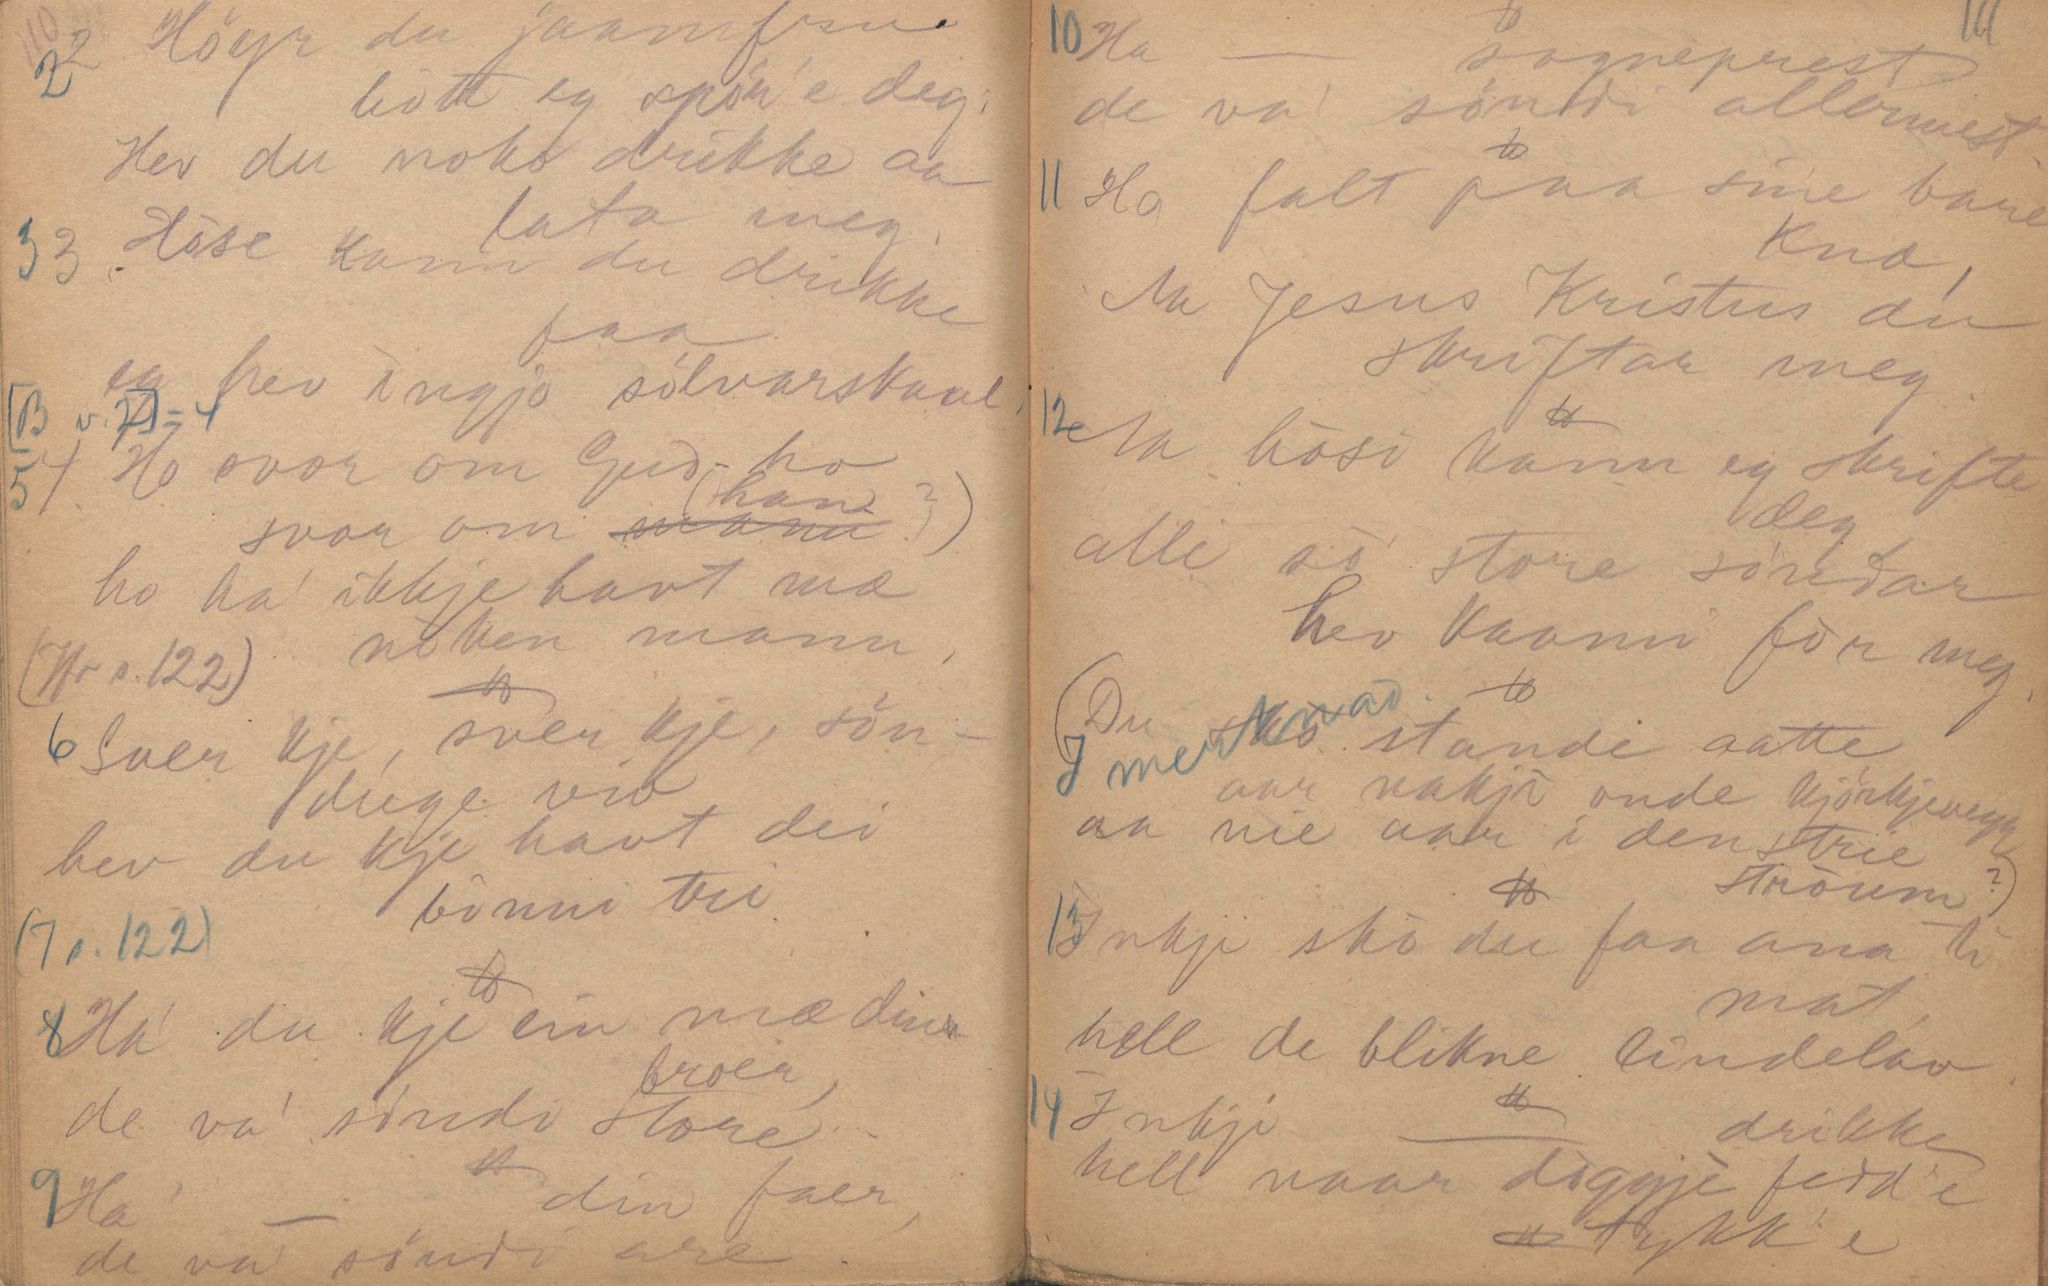 110
2 2 Höyr du jaamfru
bött eg spör'e deg;
Hev du noko drikke aa
lata meg.
3 3 Höse kann du drikke
faa
eg hev ingjo sölvarskaal.
[B v. 2] = 4
5 4 Ho svor om Gud ho
svor om mann (han ?)
ho ha' ikkje havt mæ
noken mann,
(Hr s. 122)
6 Sver kje, sver kje, sön-
duge viv
hev du kje havt dei
bönni tri
(7 s. 122)
8 Há du kje ein mæ din
broer,
de va' söndi store.
9 Ha' — din faer,
de va' söndi are.
111
10 Ha — sogneprest
de va' söndi allermest.
11 Ho falt paa sine bare
knæ,
Aa Jesus Kristus du
skriftar meg.
12 Aa hösi kann eg skrifte
deg
alli sò store söndar
hev kaami för meg.
(Du sko standi aatte
I merknad.
aar nakji onde kjörkjevegg
aa nie aar i den strie
ströum ?)
13 Inkji sko du faa ana ti
mat,
hell de blikne lindelav.
14 Inkji — drikke
hell naar döggji fedd'e
tykk'e